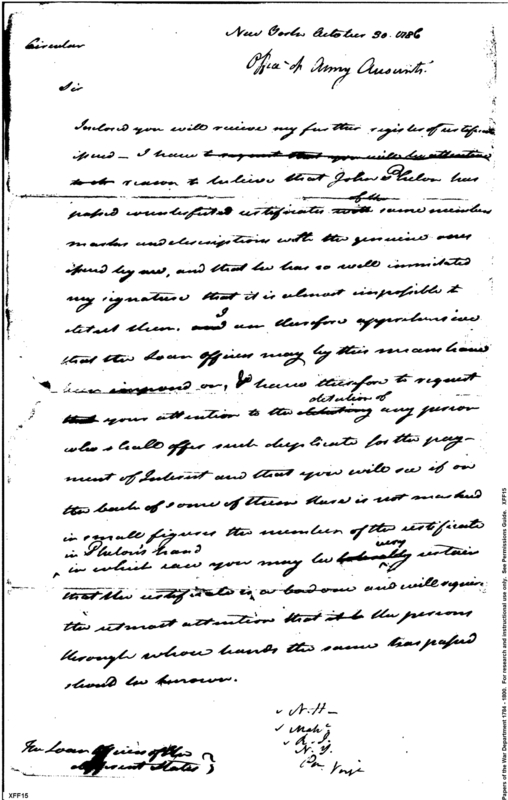 New York October 30. 1786
Circular
Office of Army Accounts.
Sir
Inclosed you will recieve my further register of certificates
issued – I have to request that you will be attentive
to reason to believe that John Phelon has
of the
passed counterfeited certificates with same numbers
marks and descriptions with the genuine ones
issued by me, and that he has so well immitated
my signature that it is almost impossible to
I
detect them. and am therefore apprehensive
that the Loan Officers may by this means have
been imposed on, I have therefore to request
detection of
that your attention to the any person
who shall offer such duplicate for the pay-
ment of Interest and that you will see if on
the back of some of them there is not marked
in small figures the number of the certificate
in Phelon's hand
very
in which case you may be tolerably certain
that the certificate is a bad one and will require
the utmost attention that the persons
through whose hands the same has passed
should be known.
N. H–
R. I.
N. Y.
The Loan Officers of the
different States
XFF15
Papers of the War Department 1784 - 1800. For research and instructional use only. See Permissions Guide. XFF15